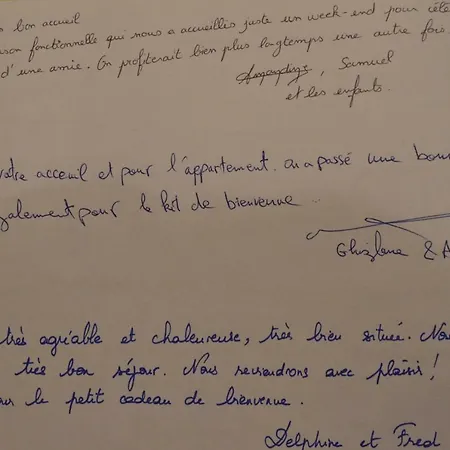 bon accueil
son fonctionnelle qui nous a accueillis juste un week-end pour célé
d'une amie. On profiterait bien plus lagtemps une autre fois.
, Samuel
et les enfants.
votre acceuil et pour l'appartement. on a passé une bonn
également pour le kit de bienvenue ..
Ghizlane & A
très agréable et chaleureuse, très bien située. No
très bon séjour. Nous reviendrons avec plaisir !
ur le petit cadeau de bienvenue.
Delphine et Fred